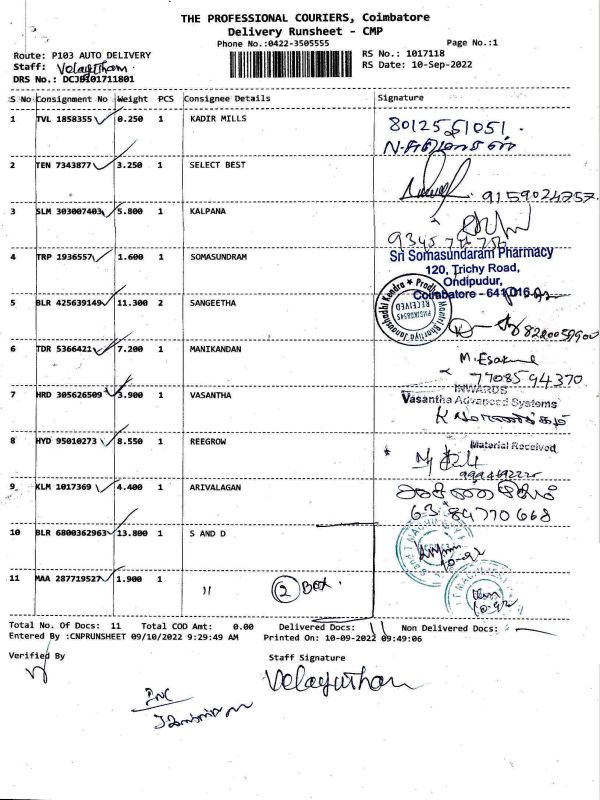 THE PROFESSIONAL COURIERS, Coimbatore
Delivery Runsheet - CMP
Phone No.:0422-3505555
Page No.:1
Route: P103 AUTO DELIVERY
RS No.: 1017118
Staff: Velayutham
RS Date: 10-Sep-2022
DRS No.: DCJBI01711801
S No Consignment No Weight PCS Consignee Details Signature
1 TVL 1858355 0.250 1 KADIR MILLS
8012551051.
2 TEN 7343877 3.250 1 SELECT BEST
9159024757.
3 SLM 303007403 5.800 1 KALPANA
4 TRP 1936557 1.600 1 SOMASUNDRAM
Sri Somasundaram Pharmacy
120, Trichy Road,
Ondipudur,
Coimbatore - 641 016
5 BLR 425639149 11.300 2 SANGEETHA
RECEIVED
6 TDR 5366421 7.200 1 MANIKANDAN
M. Esakm
7708594370
7 HRD 305626509 3.900 1 VASANTHA
INWARDS
Vasantha Advanced Systems
8 HYD 95010273 8.550 1 REEGROW
Material Received
9 KLM 1017369 4.400 1 ARIVALAGAN
6384770668
10 BLR 6800362963 13.800 1 S AND D
11 MAA 287719527 1.900 1 " 2 Box.
Total No. Of Docs: 11 Total COD Amt: 0.00 Delivered Docs: 11 Non Delivered Docs: -
Entered By :CNPRUNSHEET 09/10/2022 9:29:49 AM Printed On: 10-09-2022 09:49:06
Verified By
Staff Signature
Velayuthan